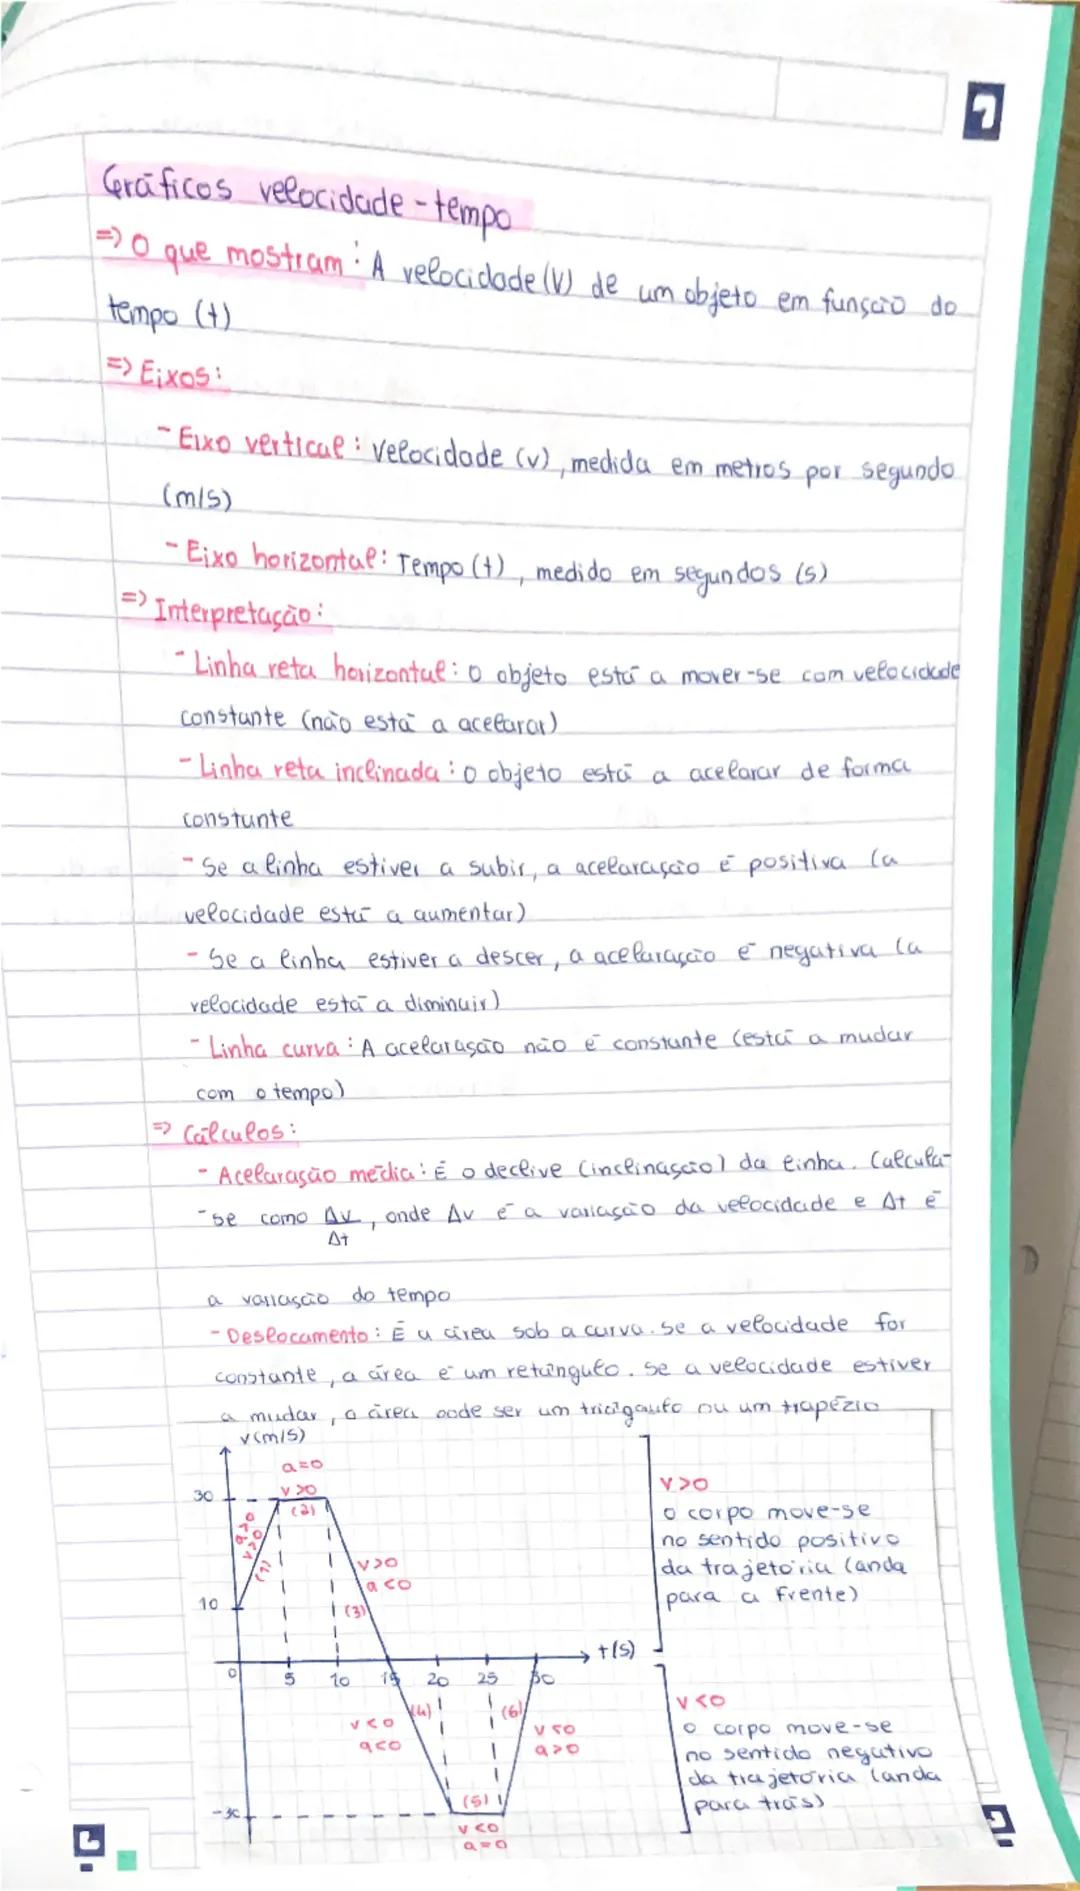 Gráficos velocidade-tempo
=> O que mostram: A velocidade (v) de um objeto em função do
tempo (t)
=> Eixos:
- Eixo vertical: velocidade (v), medida em metros por segundo
(m/s)
- Eixo horizontal: Tempo (t), medido em segundos (s)
=> Interpretação:
- Linha reta horizontal: o objeto está a mover-se com velocidade
constante (não está a acelarar)
- Linha reta inclinada: o objeto está a acelarar de forma
constante
- Se a linha estiver a subir, a acelaração é positiva (a
velocidade está a aumentar)
- Se a linha estiver a descer, a acelaração é negativa (a
velocidade está a diminuir)
- Linha curva: A acelaração não é constante (está a mudar
com o tempo)
=> Cálculos:
- Acelaração média: É o declive (inclinação) da linha. Calcula-
-se como Δv/Δt, onde Δv é a variação da velocidade e Δt é
a variação do tempo
- Deslocamento: É a área sob a curva. Se a velocidade for
constante, a área é um retângulo. Se a velocidade estiver
a mudar, a área pode ser um ou um trapézio
v(m/s)
a=0
30
v>0
(2)
a>0
v>0
(1)
v>0
a<0
10
(3)
t(s)
0
5
10
15
20
25
30
(4)
(6)
v<0
a<0
v<0
a>0
-30
(5)
v<0
a=0
v>0
o corpo move-se
no sentido positivo
da trajetória (anda
para a frente)
v<0
o corpo move-se
no sentido negativo
da trajetória (anda
para trás)